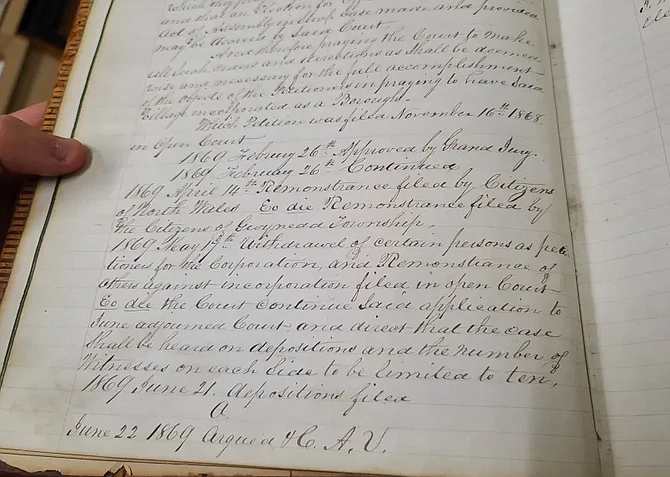 and that an Election for
Act of Assembly in Such Case made and provided
may be decreed by Said Court.
And therefore praying the Court to make
all Such Orders and directions as Shall be deemed
wise and necessary for the full accomplishment
of the objects of the Petitioners in praying to have Said
Village incorporated as a Borough.
Which Petition was filed November 16th 1868.
in Open Court
1869 February 26th Approved by Grand Jury.
1869 February 26th Continued
1869 April 14th Remonstrance filed by Citizens
of North Wales Eo die Remonstrance filed by
the Citizens of Gwynedd Township.
1869 May 19th Withdrawal of certain persons as peti
tioners for the Corporation, and Remonstrance of
others against incorporation filed in open Court
Eo die the Court continue Said application to
June adjourned Court and direct that the case
Shall be heard on depositions and the number of
Witnesses on each Side to be limited to ten,
1869 June 21. depositions filed
June 22 1869 Argued & C. A. V.